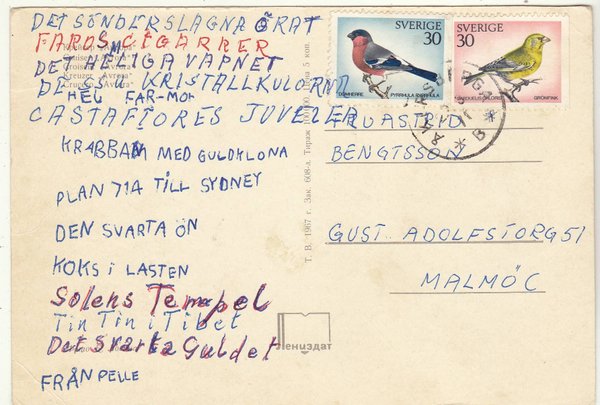 DET SÖNDERSLAGNA ÖRAT
FAROS CIGARRER
DET HEMLIGA VAPNET
KRISTALLKULORNA
HEJ FAR-MOR
CASTAFIORES JUVELER
KRABBAN MED GULDKLONA
PLAN 714 TILL SYDNEY
DEN SVARTA ÖN
KOKS i LASTEN
Solens Tempel
TinTin i Tibet
Det Svarta Guldet
FRÅN PELLE
"Аврора"
"Avrora"
Croiseur "Avrora"
Kreuzer "Avrora"
Crucero "Avrora"
Т. В. 1967 г. Зак. 608-л. Тираж
5 коп.
Лениздат
SVERIGE
30
DOMHERRE PYRRHULA PYRRHULA
SVERIGE
30
CHLORIS GRÖNFINK
FRU ASTRID
BENGTSSON
GUST. ADOLFSTORG 51
MALMÖ C